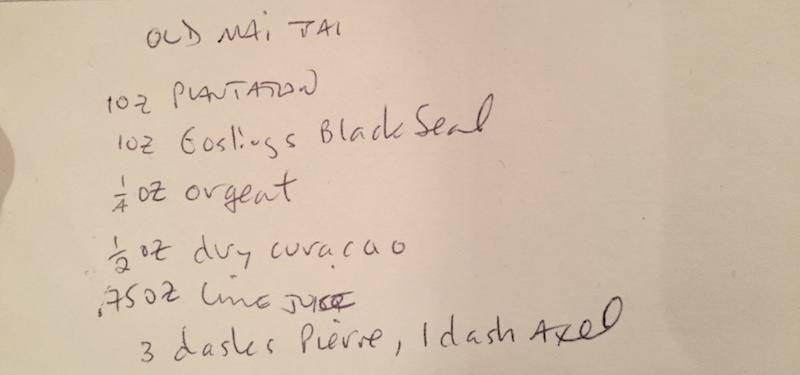 OLD MAi TAI
1oz PLANTATION
1oz Goslings Black Seal
1/4 oz orgeat
1/2 oz dry curaçao
.75oz Lime JUICE
3 dashes Pierre, 1 dash Axel